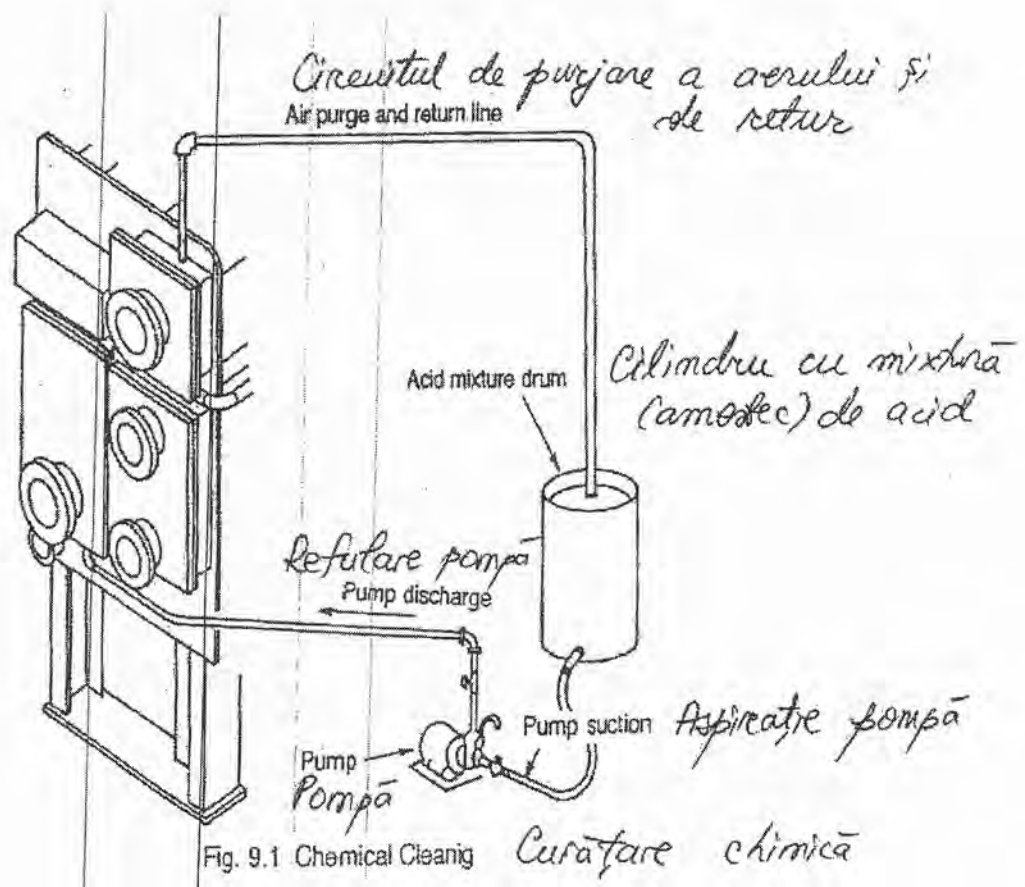 Circuitul de purjare a aerului și
de retur
Air purge and return line
Acid mixture drum
Cilindru cu mixtură
(amestec) de acid
Refulare pompă
Pump discharge
Pump suction
Aspirație pompă
Pump
Pompă
Fig. 9.1 Chemical Cleanig
Curățare chimică